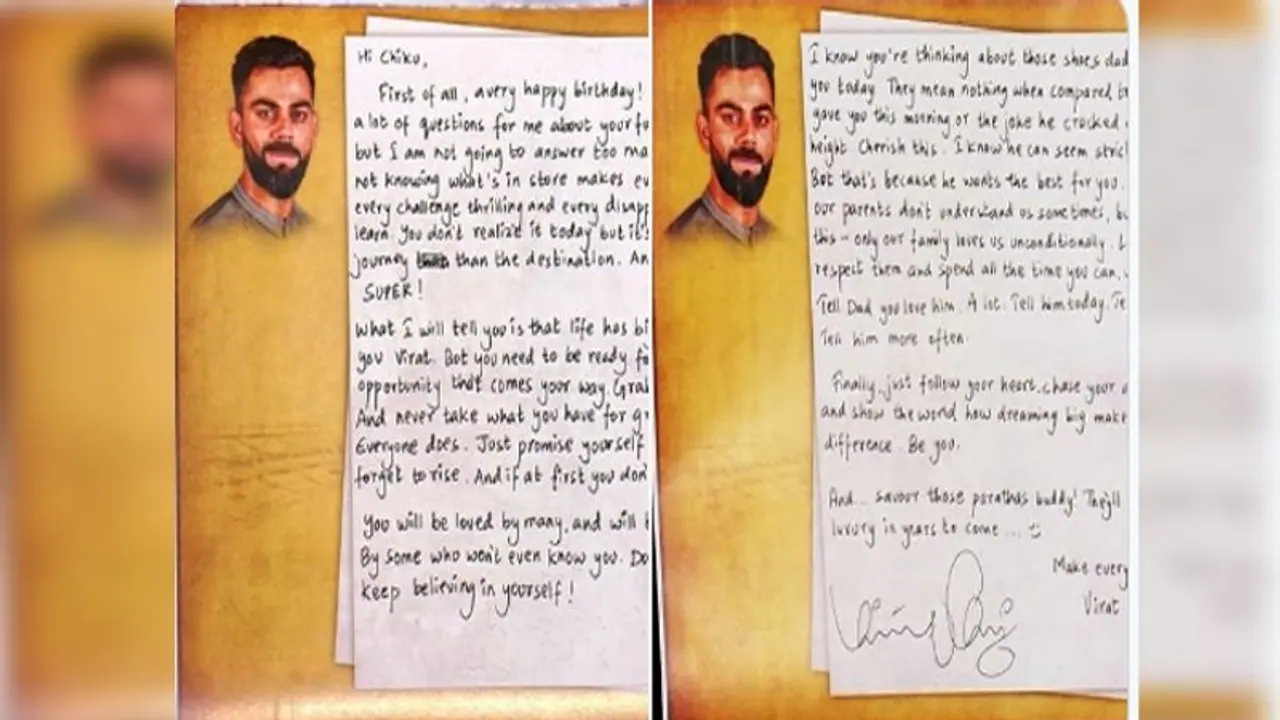 Hi Chiku,
First of all, a very happy birthday!
a lot of questions for me about your fu
but I am not going to answer too ma
not knowing what's in store makes ev
every challenge thrilling and every disapp
learn. You don't realize it today but it's
journey than the destination. An
SUPER!
What I will tell you is that life has bi
you Virat. But you need to be ready fo
opportunity that comes your way. Grab
And never take what you have for gr
Everyone does. Just promise yourself
forget to rise. And if at first you don
You will be loved by many, and will b
By some who won't even know you. Do
keep believing in yourself!
I know you're thinking about those shoes dad
you today. They mean nothing when compared to
gave you this morning or the joke he cracked
height. Cherish this. I know he can seem stric
But that's because he wants the best for you.
our parents don't understand us sometimes, bu
this - only our family loves us unconditionally. L
respect them and spend all the time you can.
Tell Dad you love him. A lot. Tell him today. Te
Tell him more often.
Finally, just follow your heart, chase your d
and show the world how dreaming big make
difference. Be you.
And... savour those parathas buddy! They'll
luxury in years to come...
Make every
Virat